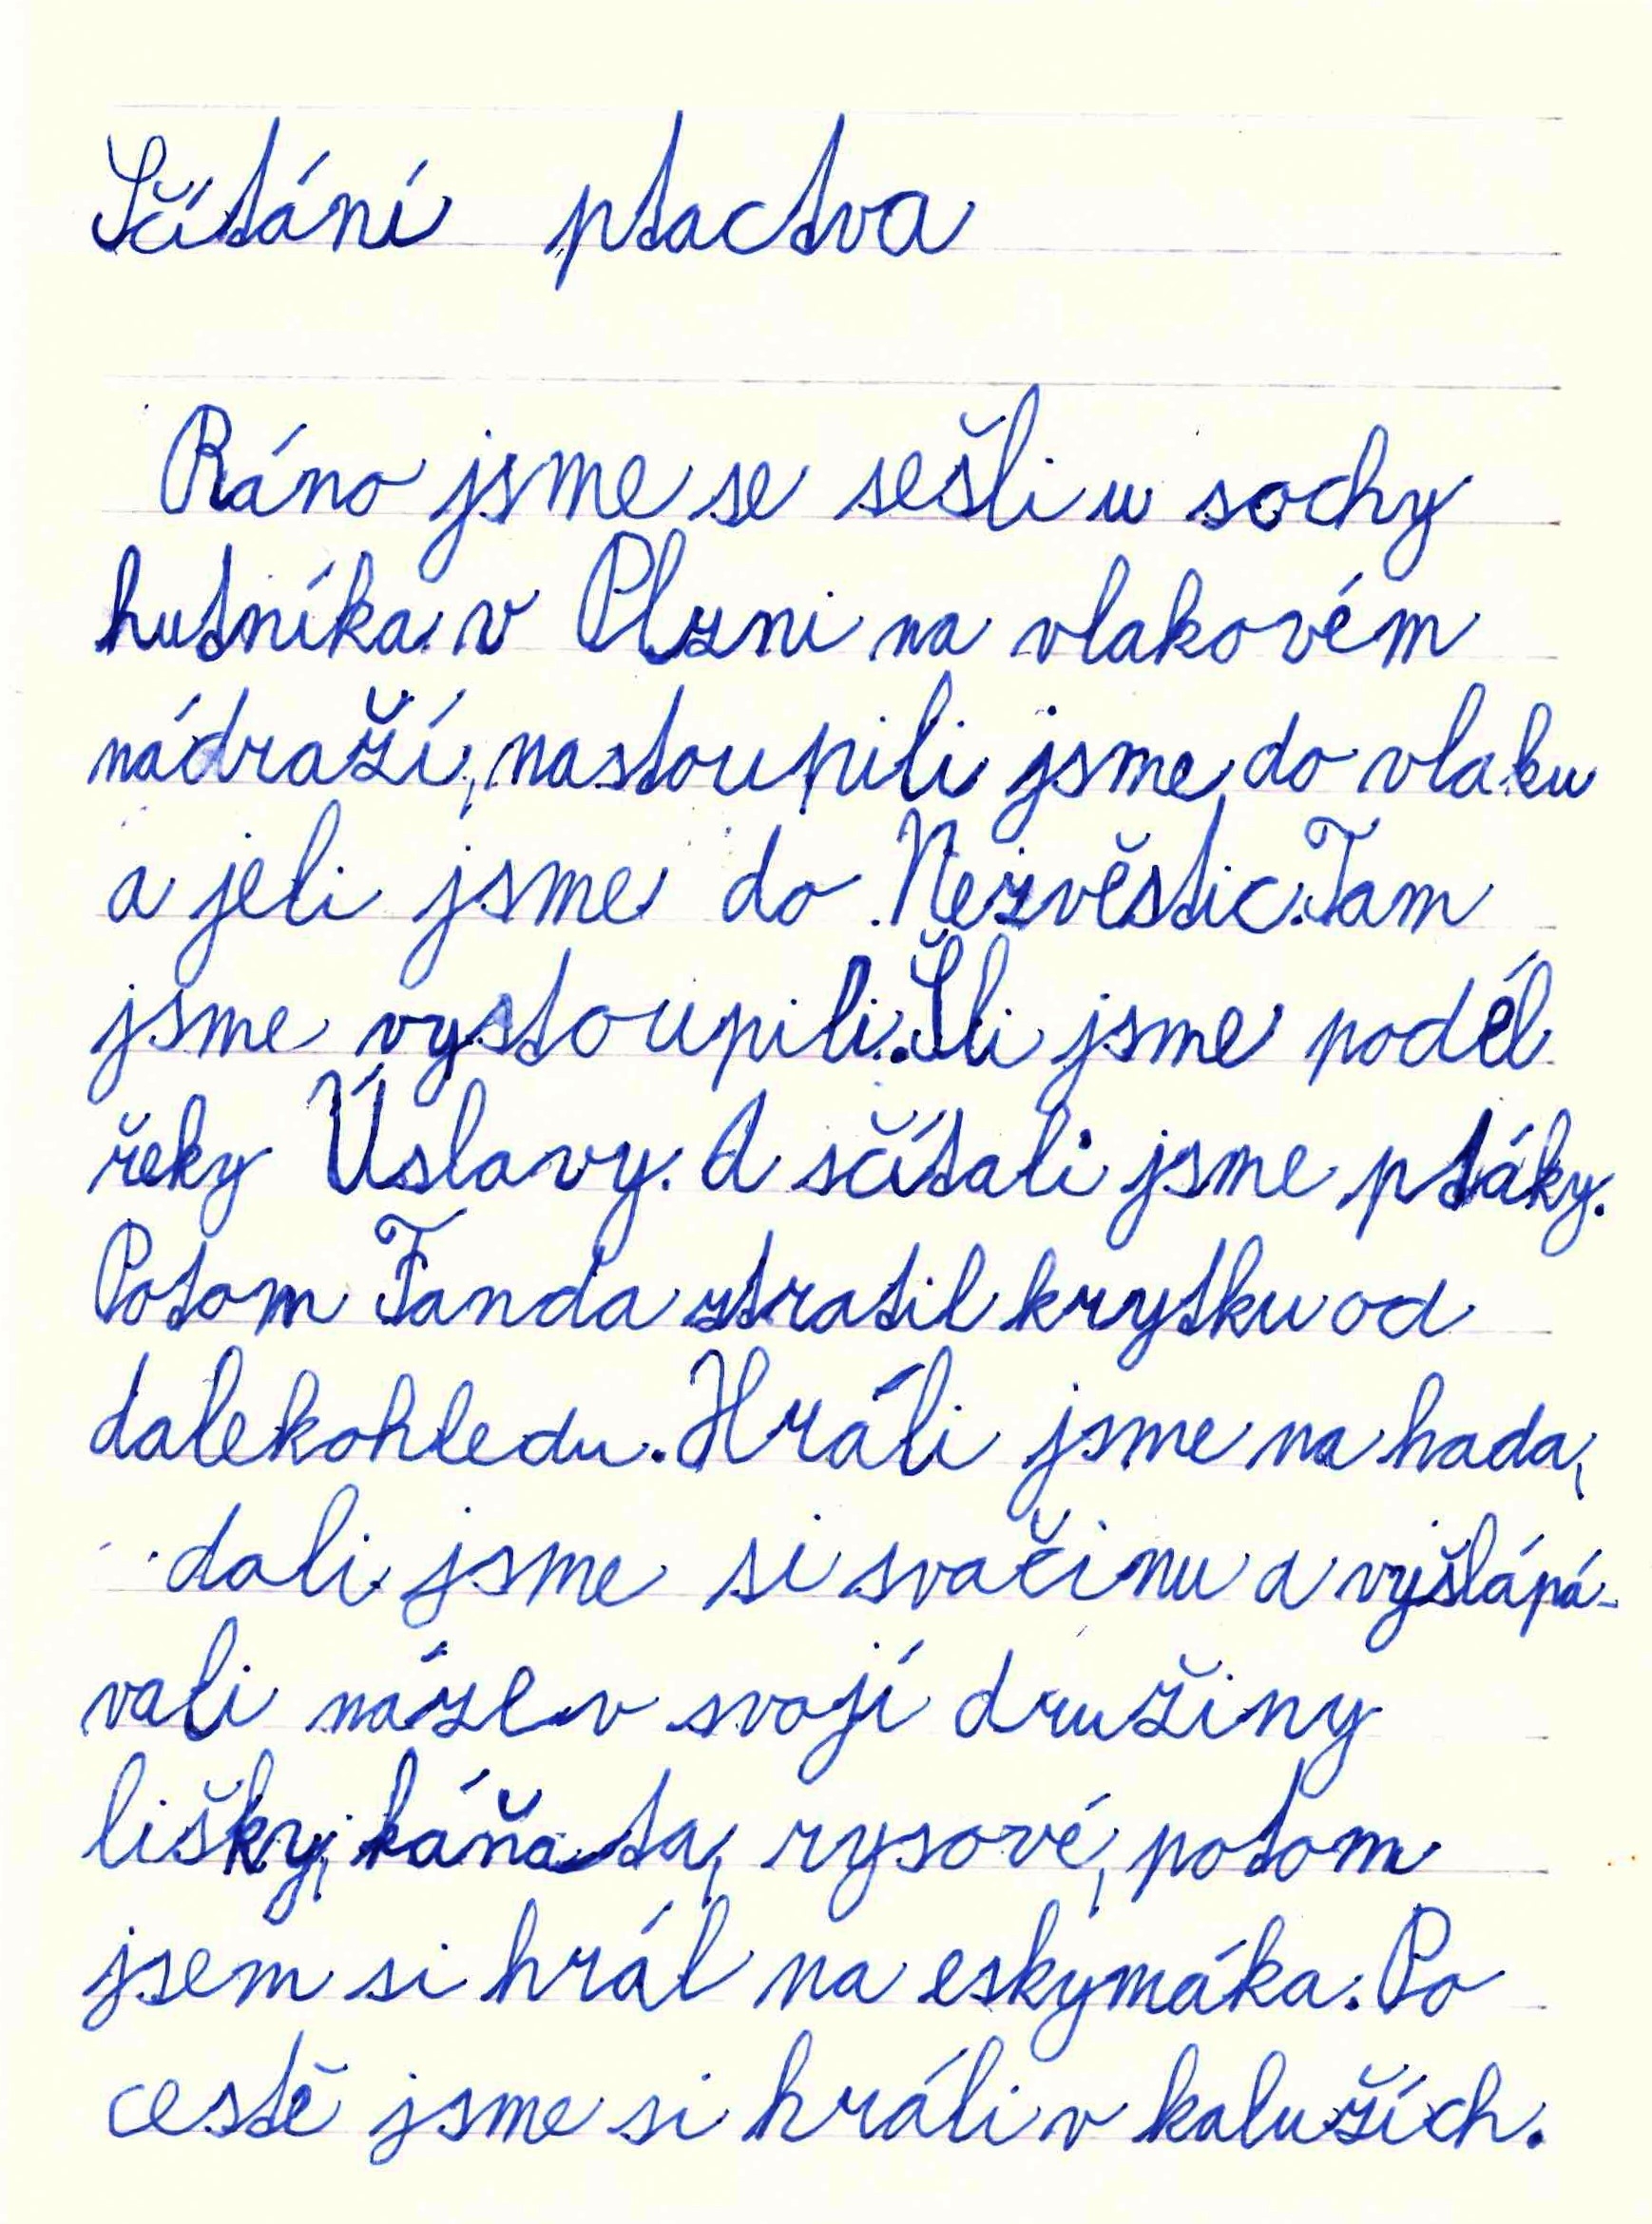 Sčítání ptactva
Ráno jsme se sešli u sochy
hutníka v Plzni na vlakovém
nádraží, nastoupili jsme do vlaku
a jeli jsme do Nezvěstic. Tam
jsme vystoupili. Šli jsme podél
řeky Úslavy. A sčítali jsme ptáky.
Potom Fanda ztratil krytku od
dalekohledu. Hráli jsme na hada,
dali jsme si svačinu a vyšlápá-
vali název svojí družiny
lišky, káňata, rysové, potom
jsem si hrál na eskymáka. Po
cestě jsme si hráli v kalužích.